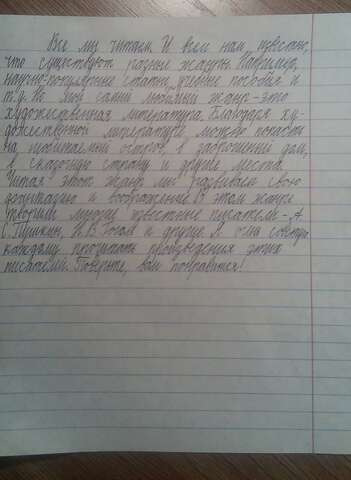 Все мы читаем. И всем нам известно,
что существуют разные жанры. Например,
научно-популярные статьи, учебные пособия и
т.д. Но мой самый любимый жанр-это
художественная литература. Благодаря ху-
дожественной литературе можно попасть
на необитаемый остров, в заброшенный дом,
в сказочную страну и другие места.
Читая этот жанр мы развиваем свою
интуицию и воображение. В этом жанре
творили многие известные писатели - А.
С. Пушкин, Н.В. Гоголь и другие. Я советую
каждому прочитать произведения этих
писателей. Поверьте, вам понравится!